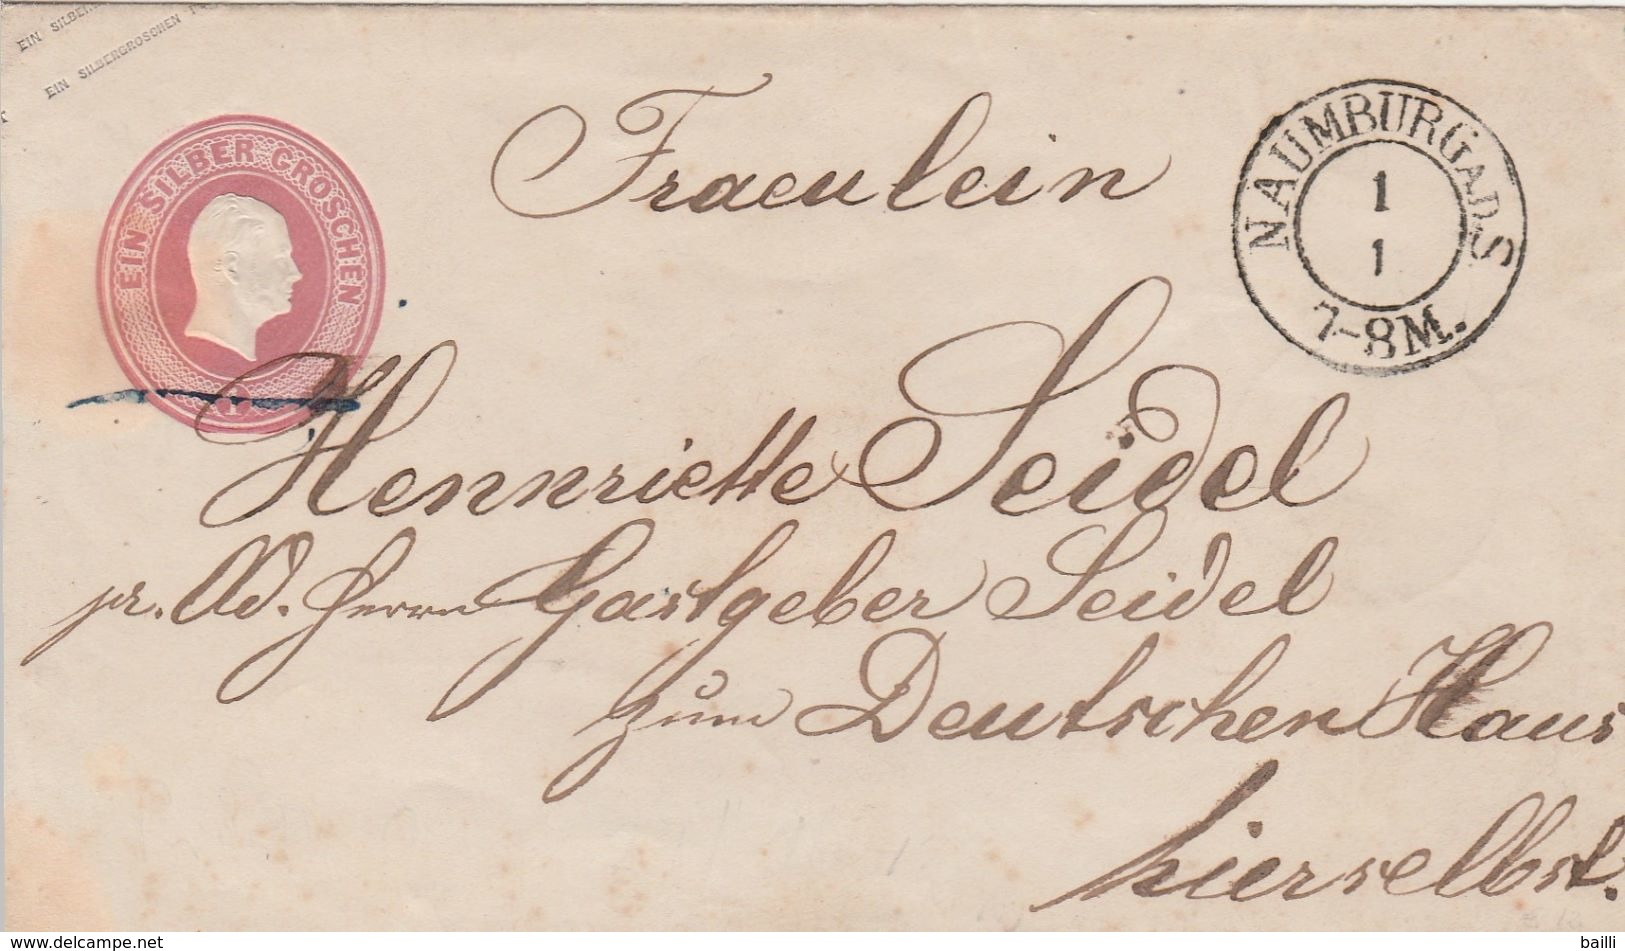 EIN SILBER
EIN SILBERGROSCHEN
EIN SILBER GROSCHEN
1
NAUMBURG A.D.S
1
1
7-8M.
Fraeulein
Hennriette Seidel
pr. Ad. Herrn Gastgeber Seidel
zum Deutschen Haus
hierselbst.
www.delcampe.net
bailli